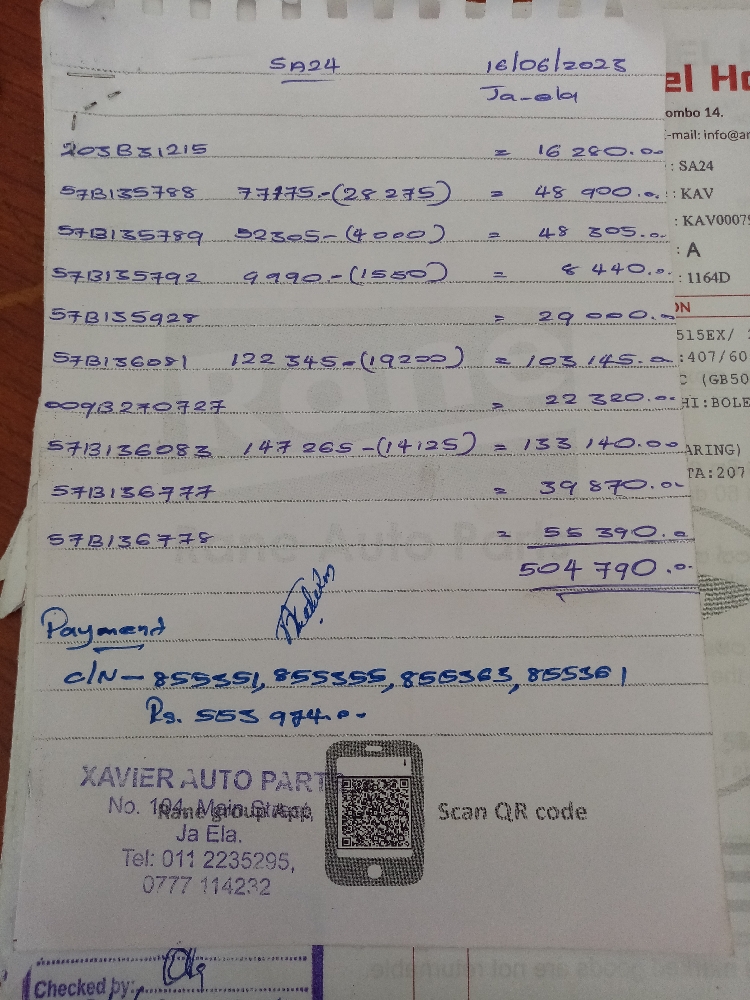 SA24 16/06/2023
Ja-ela
203B31215 = 16 280.00
57B135788 77175-(28 275) = 48 900.00
57B135789 52305-(4000) = 48 305.00
57B135792 9990-(1550) = 8 440.00
57B135928 = 29 000.00
57B136081 122 345-(19200) = 103 145.00
009B270727 = 22 320.00
57B136083 147 265-(14125) = 133 140.00
57B136777 = 39 870.00
57B136778 = 55 390.00
504 790.00
Payment
C/N - 855351, 855355, 855363, 855361
Rs. 553 974.00
XAVIER AUTO PARTS
No. 104, Main Street,
Rane group App
Ja Ela.
Tel: 011 2235295,
0777 114232
Scan QR code
Rane
Rane Auto Parts
Checked by:
el Ho
ombo 14.
-mail: info@ar
: SA24
: KAV
: KAV00079
: A
: 1164D
ON
515EX/
:407/60
C (GB50
HI:BOLE
ARING)
TA:207